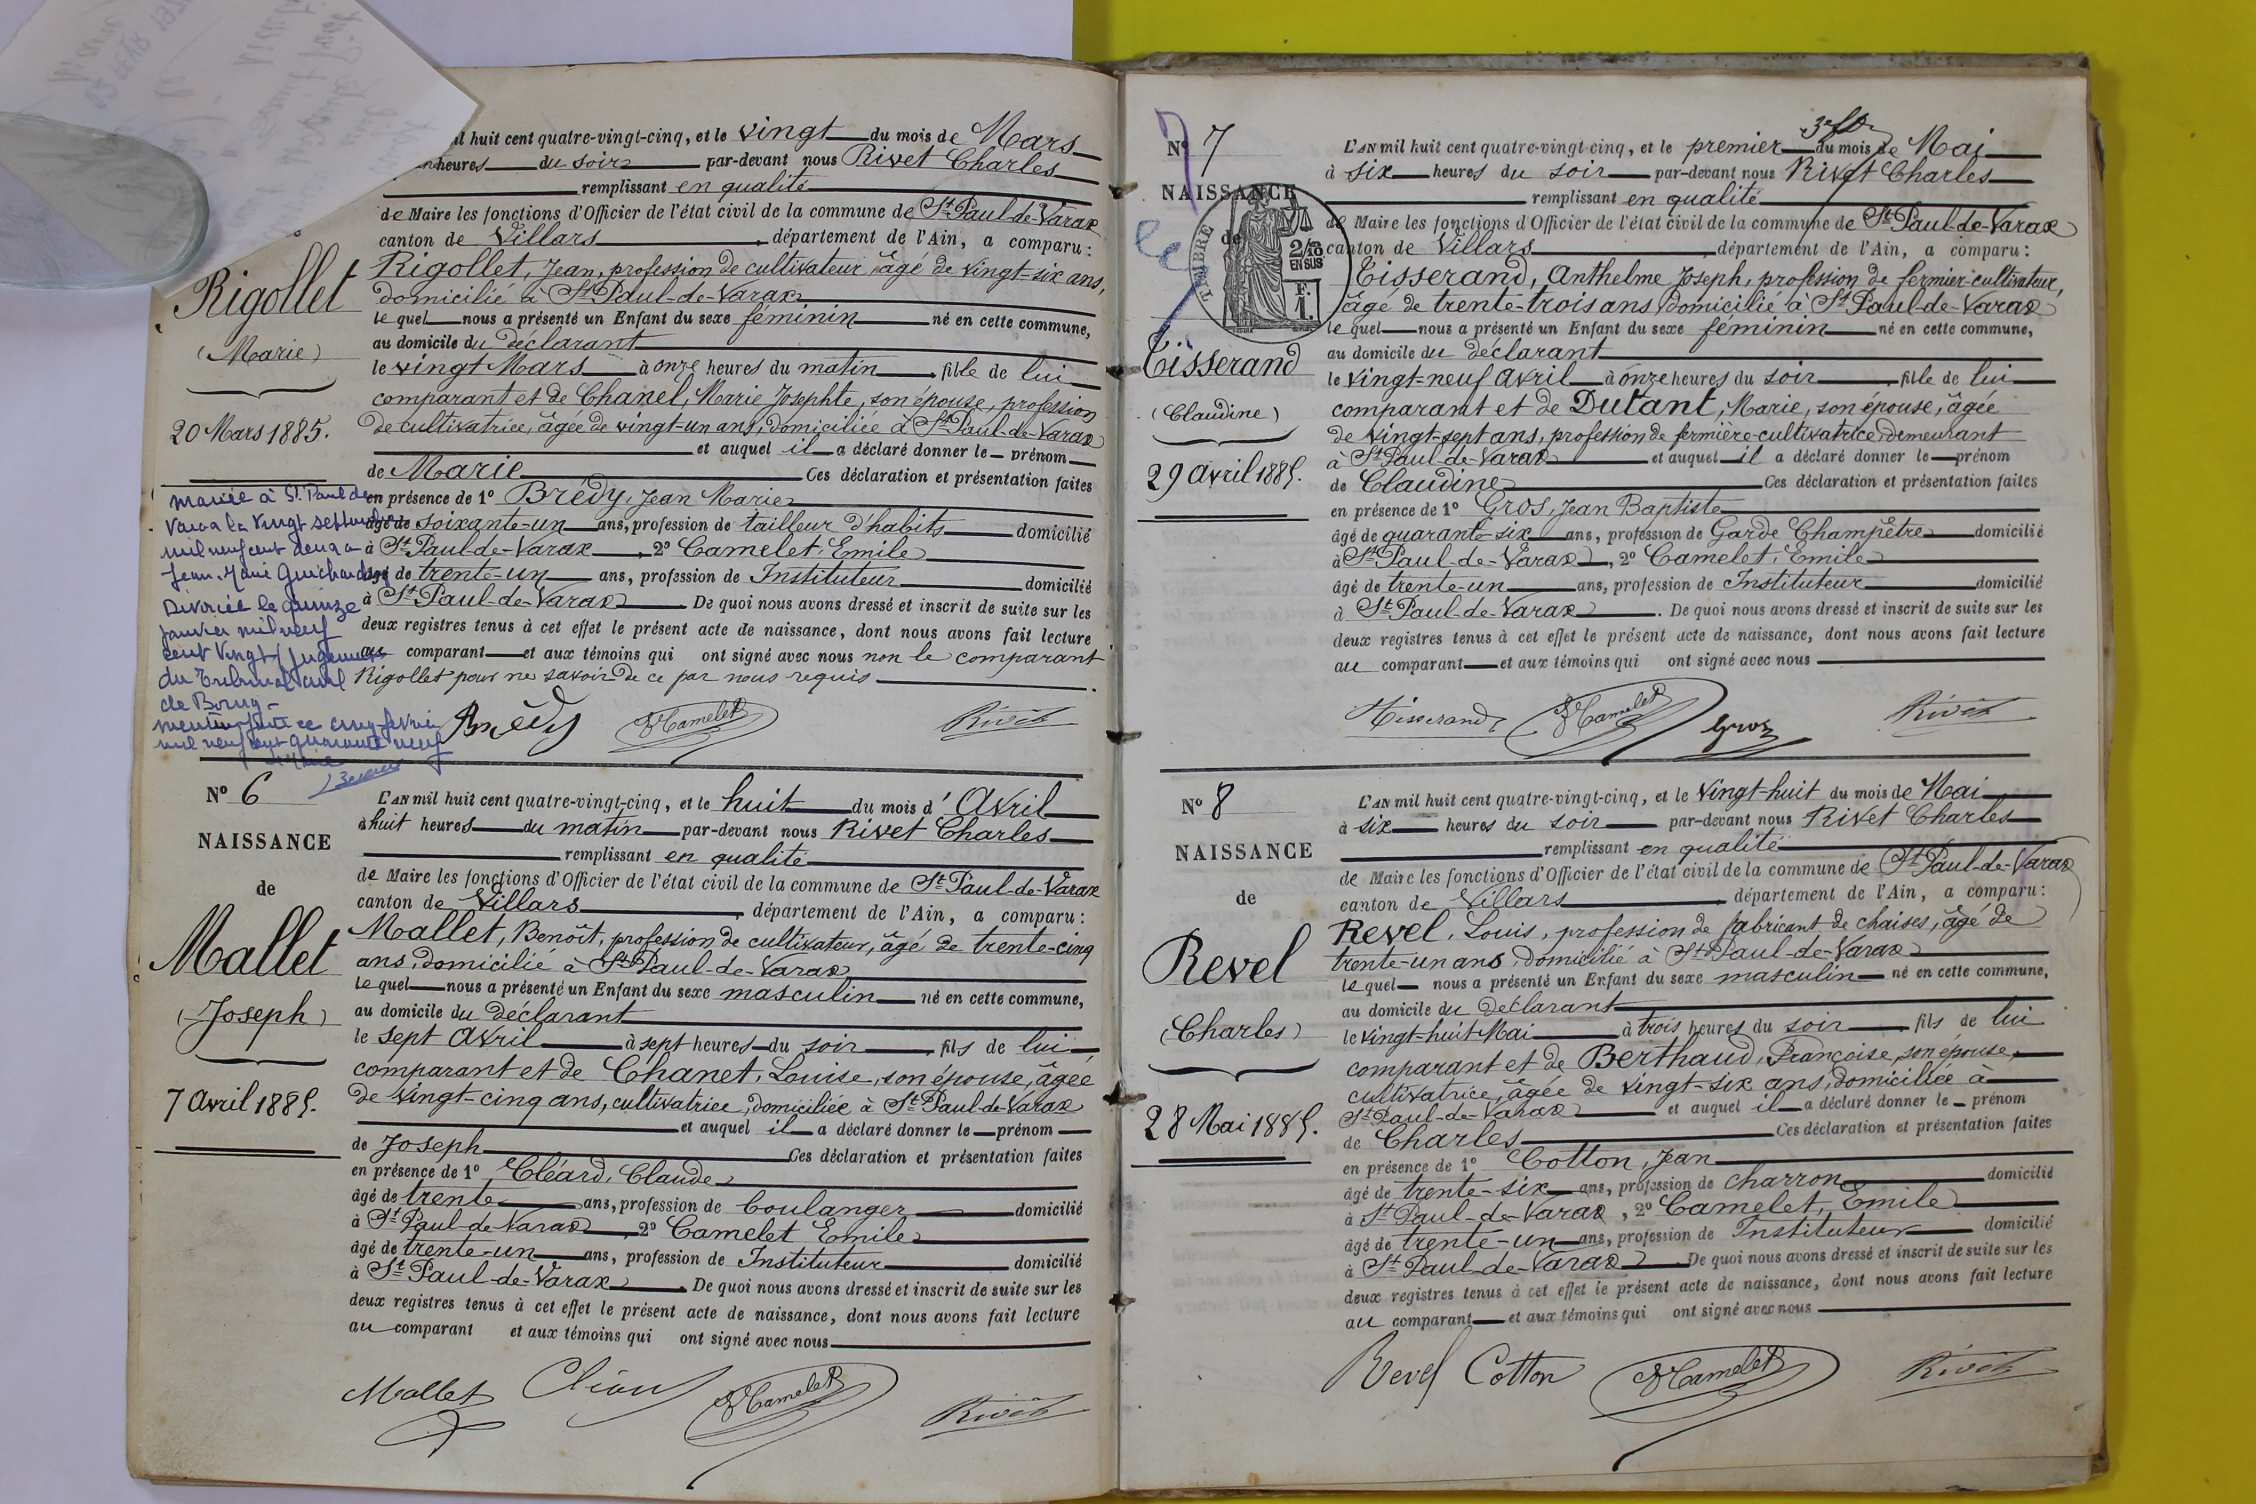 il huit cent quatre-vingt-cinq, et le vingt du mois de Mars
heures du soir par-devant nous Rivet Charles
remplissant en qualité
de Maire les fonctions d'Officier de l'état civil de la commune de St Paul-de-Varax
canton de Villars, département de l'Ain, a comparu :
Rigollet, Jean, profession de cultivateur, âgé de vingt-six ans,
domicilié à St Paul-de-Varax
lequel nous a présenté un Enfant du sexe féminin né en cette commune,
au domicile du déclarant
le vingt Mars à onze heures du matin, fille de lui
comparant et de Chanel, Marie Josephte, son épouse, profession
de cultivatrice, âgée de vingt-un ans, domiciliée à St Paul-de-Varax
et auquel il a déclaré donner le prénom
de Marie Ces déclaration et présentation faites
en présence de 1° Brédy, Jean Marie
âgé de soixante-un ans, profession de tailleur d'habits domicilié
à St Paul-de-Varax, 2° Camelet, Emile
âgé de trente-un ans, profession de Instituteur domicilié
à St Paul-de-Varax. De quoi nous avons dressé et inscrit de suite sur les
deux registres tenus à cet effet le présent acte de naissance, dont nous avons fait lecture
au comparant et aux témoins qui ont signé avec nous non le comparant
Rigollet pour ne savoir de ce par nous requis.
Brédy Camelet Rivet
Rigollet
(Marie)
20 Mars 1885.
mariée à St. Paul de
Varax le vingt septembre
mil neuf cent deux à
Jean-Marie Guichardon
Divorcée le quinze
janvier mil neuf
cent vingt (jugement
du Tribunal civil
de Bourg -
mention faite ce cinq février
mil neuf cent quarante neuf
N° 6
NAISSANCE
de
Mallet
(Joseph)
7 Avril 1885.
L'AN mil huit cent quatre-vingt-cinq, et le huit du mois d'Avril
à huit heures du matin par-devant nous Rivet Charles
remplissant en qualité
de Maire les fonctions d'Officier de l'état civil de la commune de St Paul-de-Varax
canton de Villars, département de l'Ain, a comparu :
Mallet, Benoît, profession de cultivateur, âgé de trente-cinq
ans, domicilié à St Paul-de-Varax
lequel nous a présenté un Enfant du sexe masculin né en cette commune,
au domicile du déclarant
le sept Avril à sept heures du soir, fils de lui
comparant et de Chanet, Louise, son épouse, âgée
de vingt-cinq ans, cultivatrice, domiciliée à St Paul-de-Varax
et auquel il a déclaré donner le prénom
de Joseph Ces déclaration et présentation faites
en présence de 1° Cléard, Claude
âgé de trente ans, profession de boulanger domicilié
à St Paul-de-Varax, 2° Camelet Emile
âgé de trente-un ans, profession de Instituteur domicilié
à St Paul-de-Varax. De quoi nous avons dressé et inscrit de suite sur les
deux registres tenus à cet effet le présent acte de naissance, dont nous avons fait lecture
au comparant et aux témoins qui ont signé avec nous
Mallet Cléard Camelet Rivet
N° 7
NAISSANCE
de
TIMBRE
2/10
EN SUS
F.
1.
Tisserand
(Claudine)
29 Avril 1885.
L'AN mil huit cent quatre-vingt-cinq, et le premier du mois de Mai
à six heures du soir par-devant nous Rivet Charles
remplissant en qualité
de Maire les fonctions d'Officier de l'état civil de la commune de St Paul-de-Varax
canton de Villars, département de l'Ain, a comparu :
Tisserand, Anthelme Joseph, profession de fermier-cultivateur,
âgé de trente-trois ans, domicilié à St Paul-de-Varax
lequel nous a présenté un Enfant du sexe féminin né en cette commune,
au domicile du déclarant
le vingt-neuf Avril à onze heures du soir, fille de lui
comparant et de Dutant, Marie, son épouse, âgée
de vingt-sept ans, profession de fermière-cultivatrice, demeurant
à St Paul-de-Varax et auquel il a déclaré donner le prénom
de Claudine Ces déclaration et présentation faites
en présence de 1° Gros, Jean Baptiste
âgé de quarante-six ans, profession de Garde Champêtre domicilié
à St Paul-de-Varax, 2° Camelet, Emile
âgé de trente-un ans, profession de Instituteur domicilié
à St Paul-de-Varax. De quoi nous avons dressé et inscrit de suite sur les
deux registres tenus à cet effet le présent acte de naissance, dont nous avons fait lecture
au comparant et aux témoins qui ont signé avec nous
Tisserand Camelet Gros Rivet
N° 8
NAISSANCE
de
Revel
(Charles)
28 Mai 1885.
L'AN mil huit cent quatre-vingt-cinq, et le vingt-huit du mois de Mai
à six heures du soir par-devant nous Rivet Charles
remplissant en qualité
de Maire les fonctions d'Officier de l'état civil de la commune de St Paul-de-Varax
canton de Villars, département de l'Ain, a comparu :
Revel, Louis, profession de fabricant de chaises, âgé de
trente-un ans, domicilié à St Paul-de-Varax
lequel nous a présenté un Enfant du sexe masculin né en cette commune,
au domicile du déclarant
le vingt-huit Mai à trois heures du soir, fils de lui
comparant et de Berthaud, Françoise, son épouse,
cultivatrice, âgée de vingt-six ans, domiciliée à
St Paul-de-Varax et auquel il a déclaré donner le prénom
de Charles Ces déclaration et présentation faites
en présence de 1° Cotton, Jean
âgé de trente-six ans, profession de charron domicilié
à St Paul-de-Varax, 2° Camelet, Emile
âgé de trente-un ans, profession de Instituteur domicilié
à St Paul-de-Varax. De quoi nous avons dressé et inscrit de suite sur les
deux registres tenus à cet effet le présent acte de naissance, dont nous avons fait lecture
au comparant et aux témoins qui ont signé avec nous
Revel Cotton Camelet Rivet